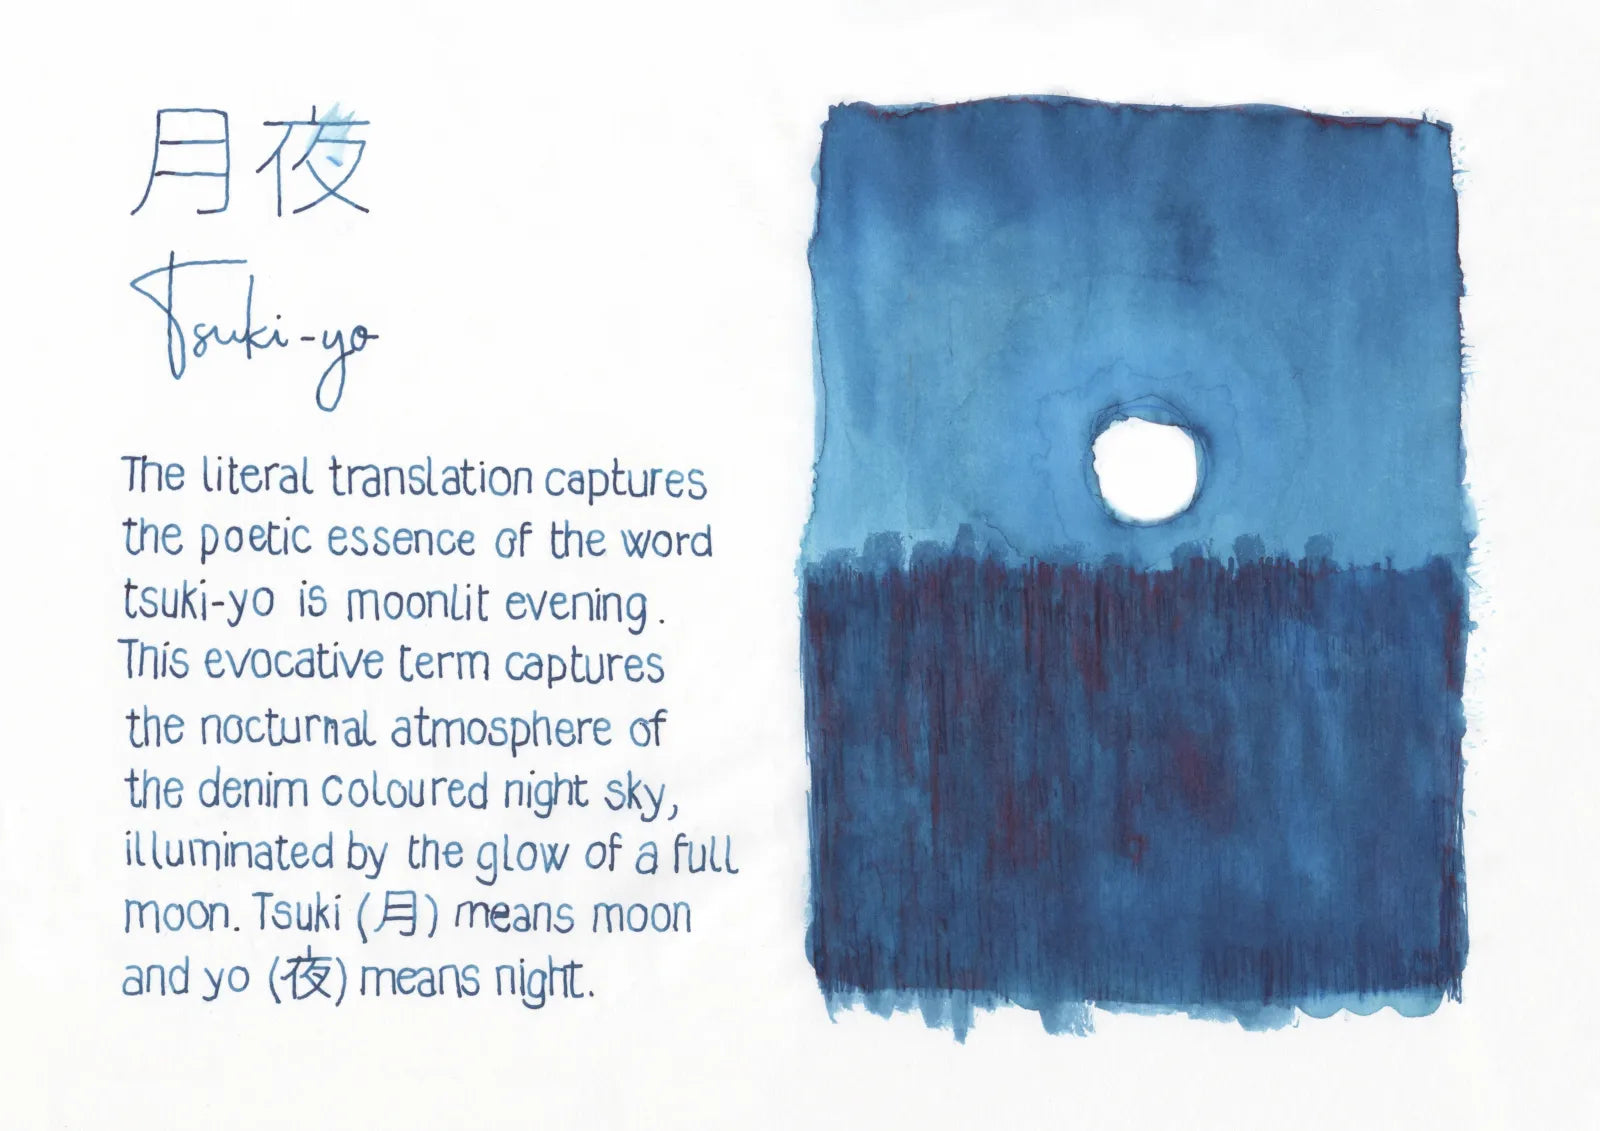 月夜
Tsuki-yo
The literal translation captures
the poetic essence of the word
tsuki-yo is moonlit evening.
This evocative term captures
the nocturnal atmosphere of
the denim coloured night sky,
illuminated by the glow of a full
moon. Tsuki (月) means moon
and yo (夜) means night.